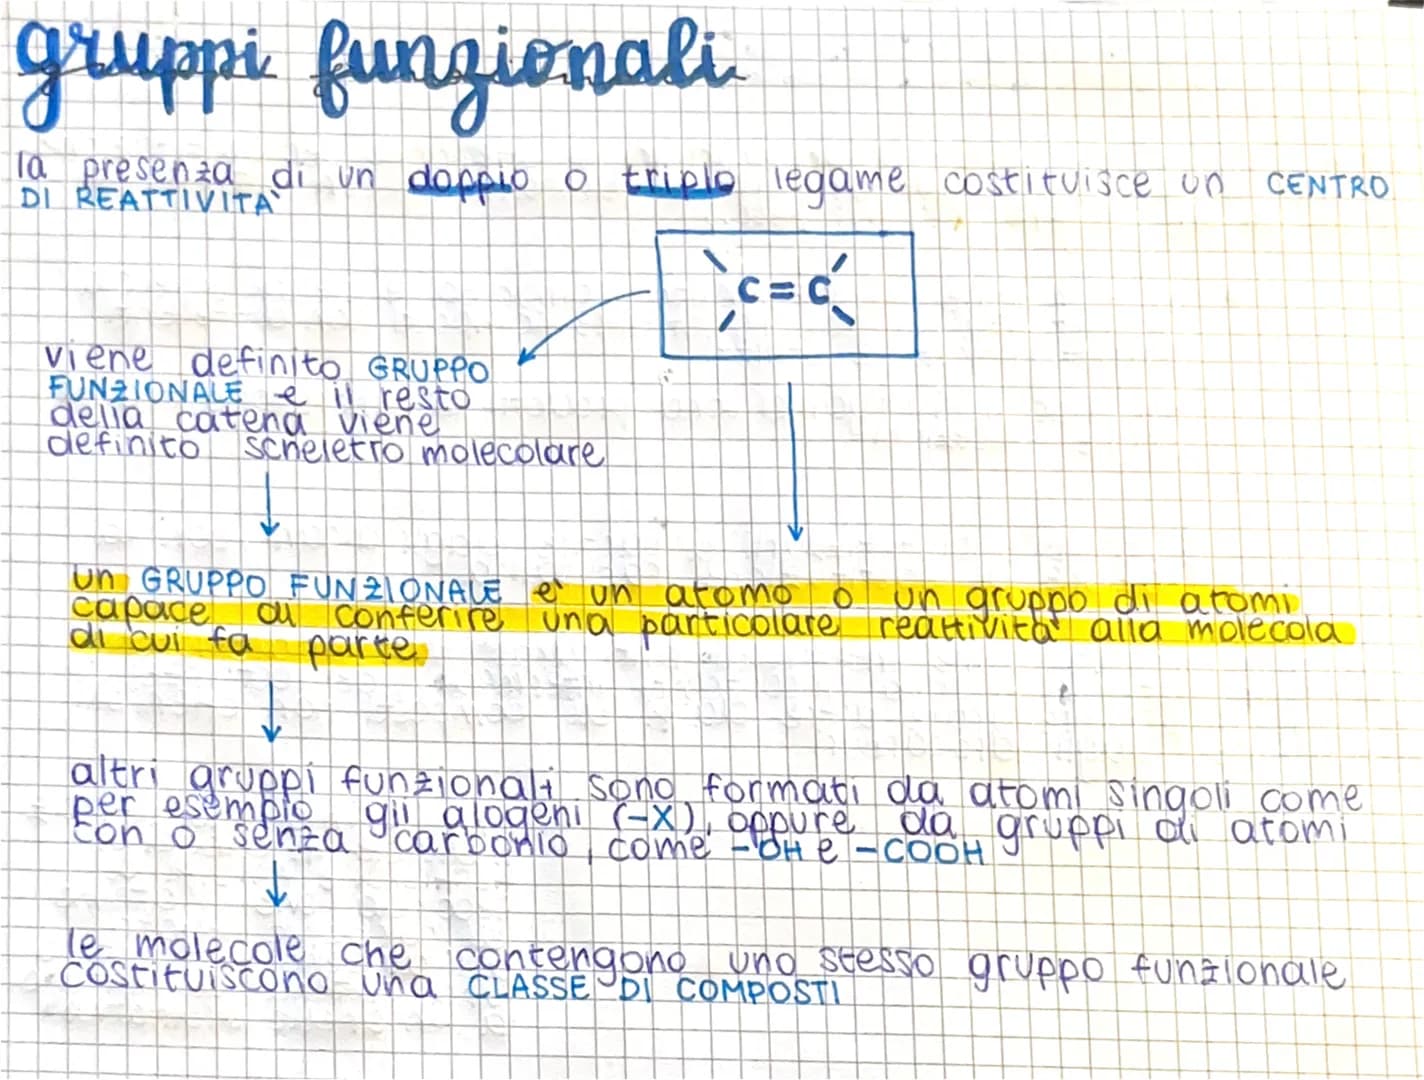 gruppi funzionali
la presenza di un doppio o triplo legame costituisce un CENTRO
DI REATTIVITA'
C = C
viene definito GRUPPO
FUNZIONALE e il resto
della catena viene
definito scheletro molecolare
un GRUPPO FUNZIONALE è un atomo o un gruppo di atomi
capace di conferire una particolare reattività alla molecola
di cui fa parte
altri gruppi funzionali sono formati da atomi singoli come
per esempio gli alogeni (-X), oppure da gruppi di atomi
con o senza carbonio, come -OH e -COOH
le molecole che contengono uno stesso gruppo funzionale
costituiscono una CLASSE DI COMPOSTI